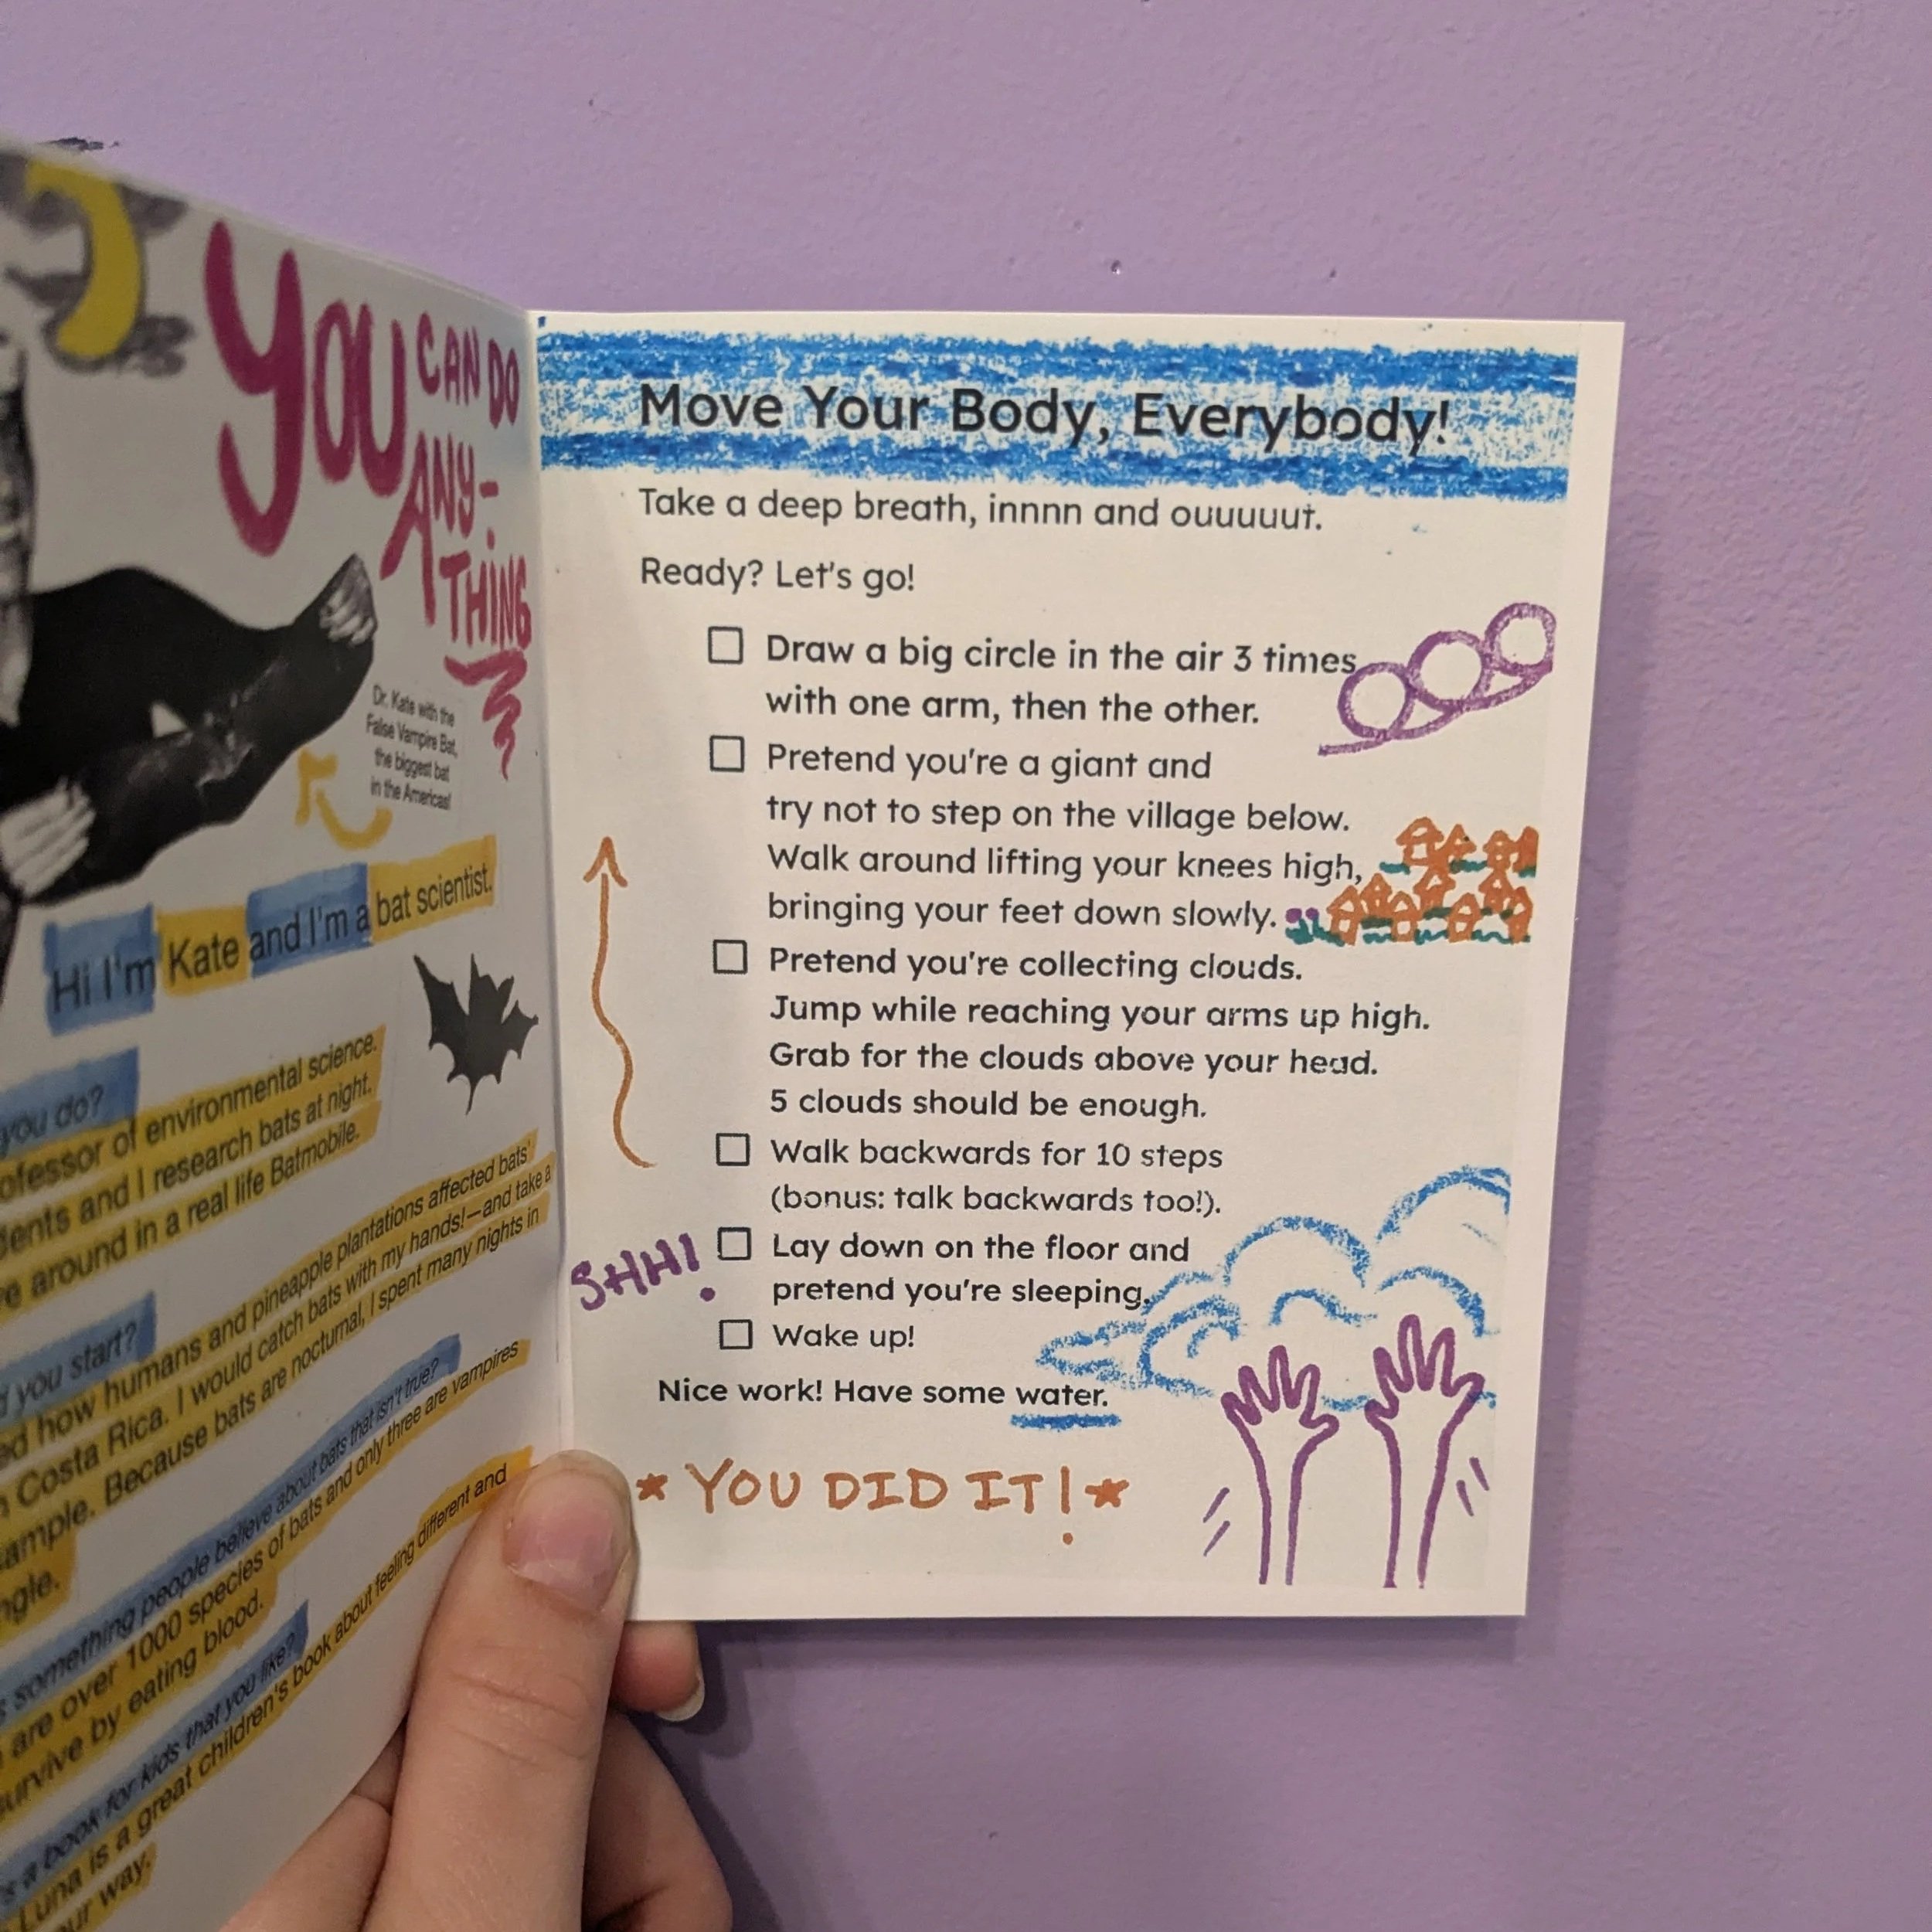 YOU
CAN DO
ANY-
THING
Dr. Kate with the
False Vampire Bat,
the biggest bat
in the Americas!
Hi I'm Kate and I'm a bat scientist.
you do?
of environmental science.
and I research bats at night.
around in a real life Batmobile.
you start?
how humans and pineapple plantations affected bats'
Costa Rica. I would catch bats with my hands!—and take a
Because bats are nocturnal, I spent many nights in
something people believe about bats that isn't true?
are over 1000 species of bats and only three are vampires
survive by eating blood.
a book for kids that you like?
Luna is a great children's book about feeling different and
way.
Move Your Body, Everybody!
Take a deep breath, innnn and ouuuuut.
Ready? Let's go!
Draw a big circle in the air 3 times
with one arm, then the other.
Pretend you're a giant and
try not to step on the village below.
Walk around lifting your knees high,
bringing your feet down slowly.
Pretend you're collecting clouds.
Jump while reaching your arms up high.
Grab for the clouds above your head.
5 clouds should be enough.
Walk backwards for 10 steps
(bonus: talk backwards too!).
SHH!
Lay down on the floor and
pretend you're sleeping.
Wake up!
Nice work! Have some water.
* YOU DID IT! *